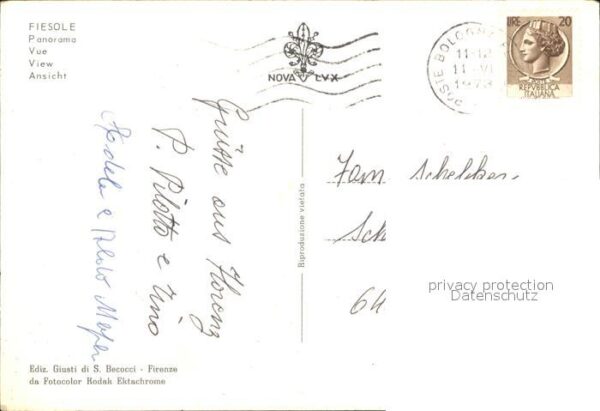 FIESOLE
Panorama
Vue
View
Ansicht
NOVA LVX
POSTE BOLOGNA
11-12
11 VI
LIRE 20
REPVBBLICA
ITALIANA
Grüsse aus Florenz
P. Pilotto e Tino
Adela e
Riproduzione vietata
Fam Schekker.
Sch
64
privacy protection
Datenschutz
Ediz. Giusti di S. Becocci - Firenze
da Fotocolor Kodak Ektachrome